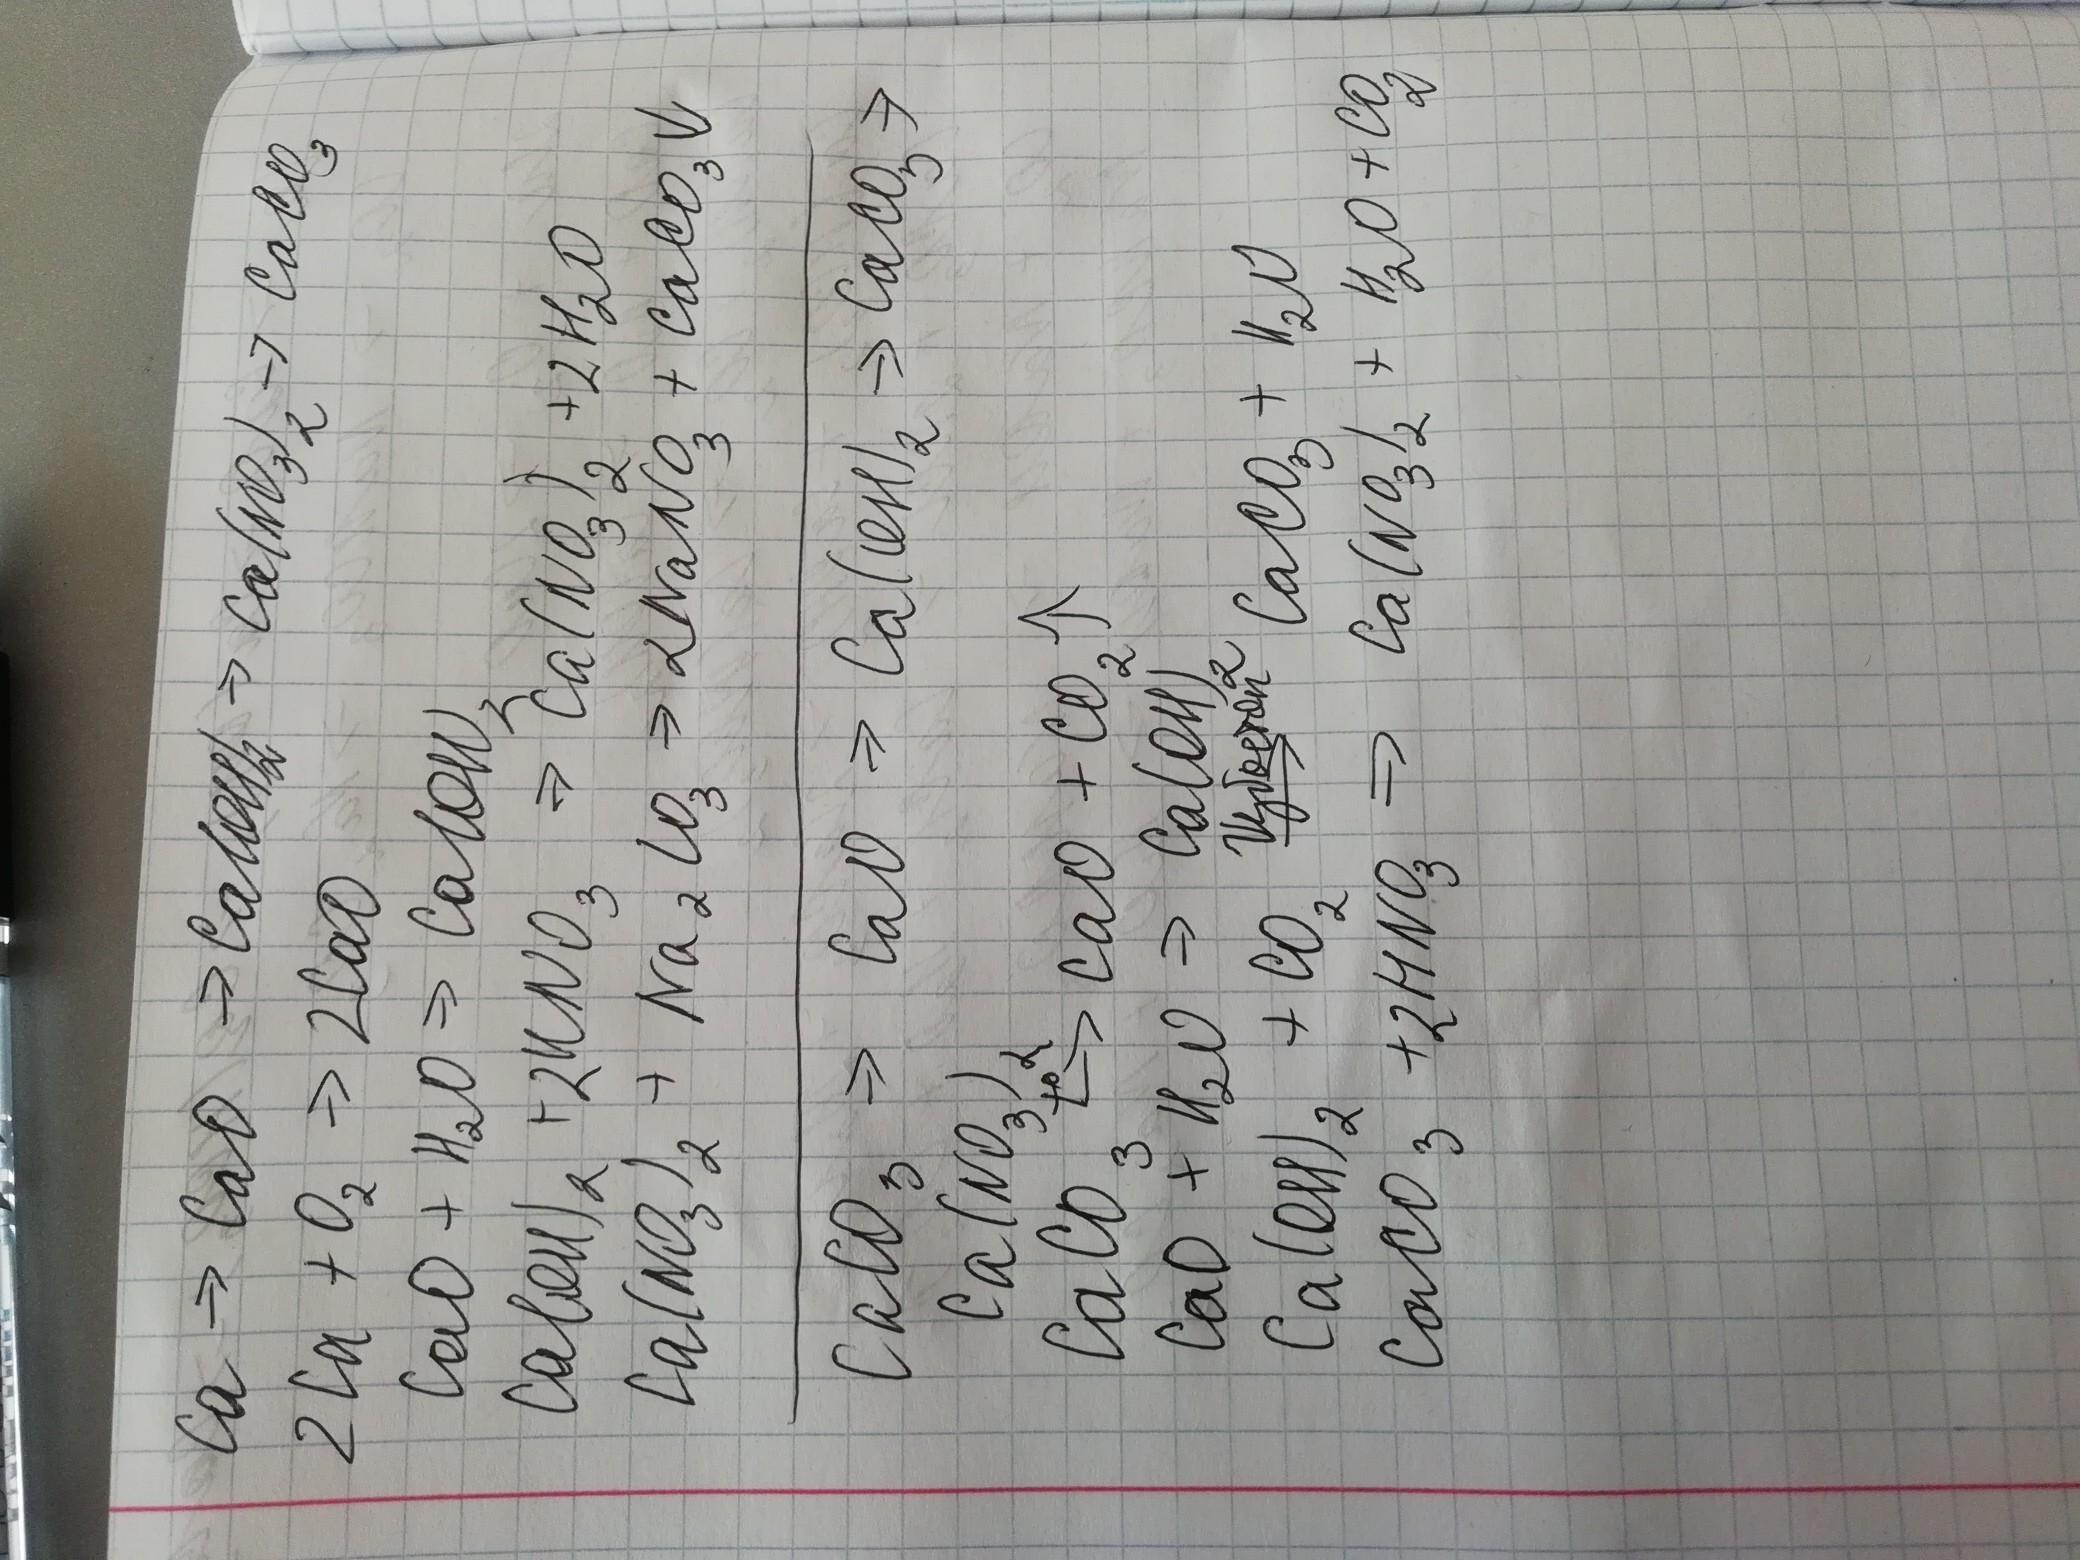 Ca → CaO → Ca(OH)₂ → Ca(NO₃)₂ → CaCO₃
2Ca + O₂ → 2CaO
CaO + H₂O → Ca(OH)₂
Ca(OH)₂ + 2HNO₃ → Ca(NO₃)₂ + 2H₂O
Ca(NO₃)₂ + Na₂CO₃ → 2NaNO₃ + CaCO₃↓
CaCO₃ → CaO → Ca(OH)₂ → CaCO₃ →
Ca(NO₃)₂
CaCO₃ →(t°) CaO + CO₂↑
CaO + H₂O → Ca(OH)₂
Ca(OH)₂ + CO₂ →(Избыток) CaCO₃ + H₂O
CaCO₃ + 2HNO₃ → Ca(NO₃)₂ + H₂O + CO₂